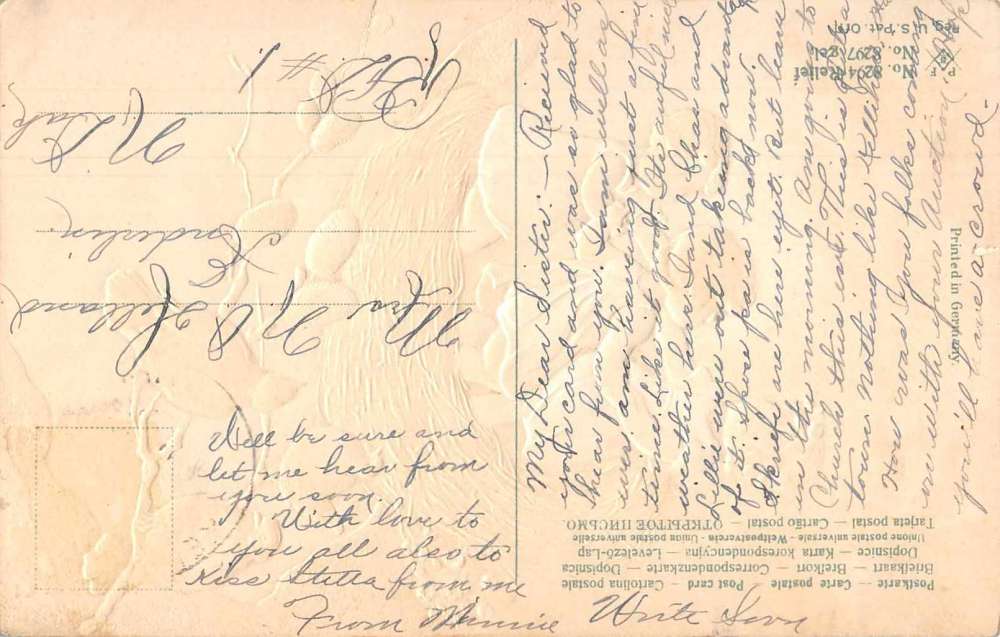 My Dear Sister:— Received
your card and was so glad to
hear from you. I am well as
ever am having just a fine
time. Like it good. Its awful nice
weather here. I and Chas and
Lillie were out taking advantage
of it. Spose pa is back now.
are here yet. But leave
in the morning. Am going to
Church this eve. This is a
town nothing like
How was you folks coming
on with your Auction. Hope
you'll have a crowd—
Well be sure and
let me hear from
you soon.
With love to
you all also to
Kiss Stella from me
From Minnie Write Soon
Mrs N O Helland
Kinderlin
N Dak
R.F.D. #1
Postkarte — Carte postale — Post card — Cartolina postale
Briefkaart — Brefkort — Correspondenzkarte — Dopisnica
Dopisnice — Karta korespondencyjna — Levelező-Lap
Unione postale universale - Weltpostverein - Union postale universelle
Tarjeta postal — Cartão postal — ОТКРЫТОЕ ПИСЬМО.
Printed in Germany.
P F B
Reg. U.S. Pat. Off.
No. 8297 gel.
No. 8294 Relief